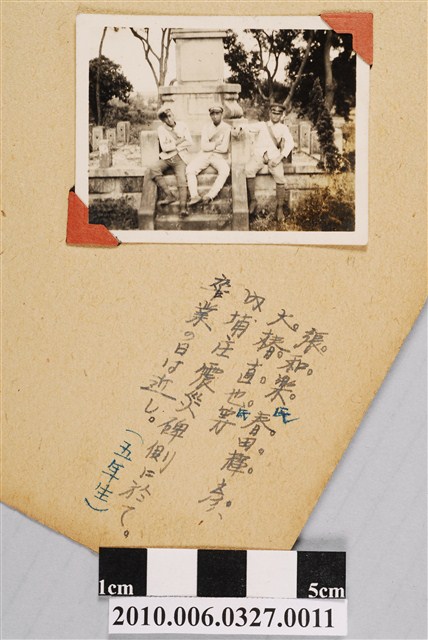 張。和。樂。氏 春。田。輝。彥。、
大。椿。直。也。氏等
內埔庄震災碑側に於て。
卒業の日は近し。
(五年生)
1cm
5cm
2010.006.0327.0011